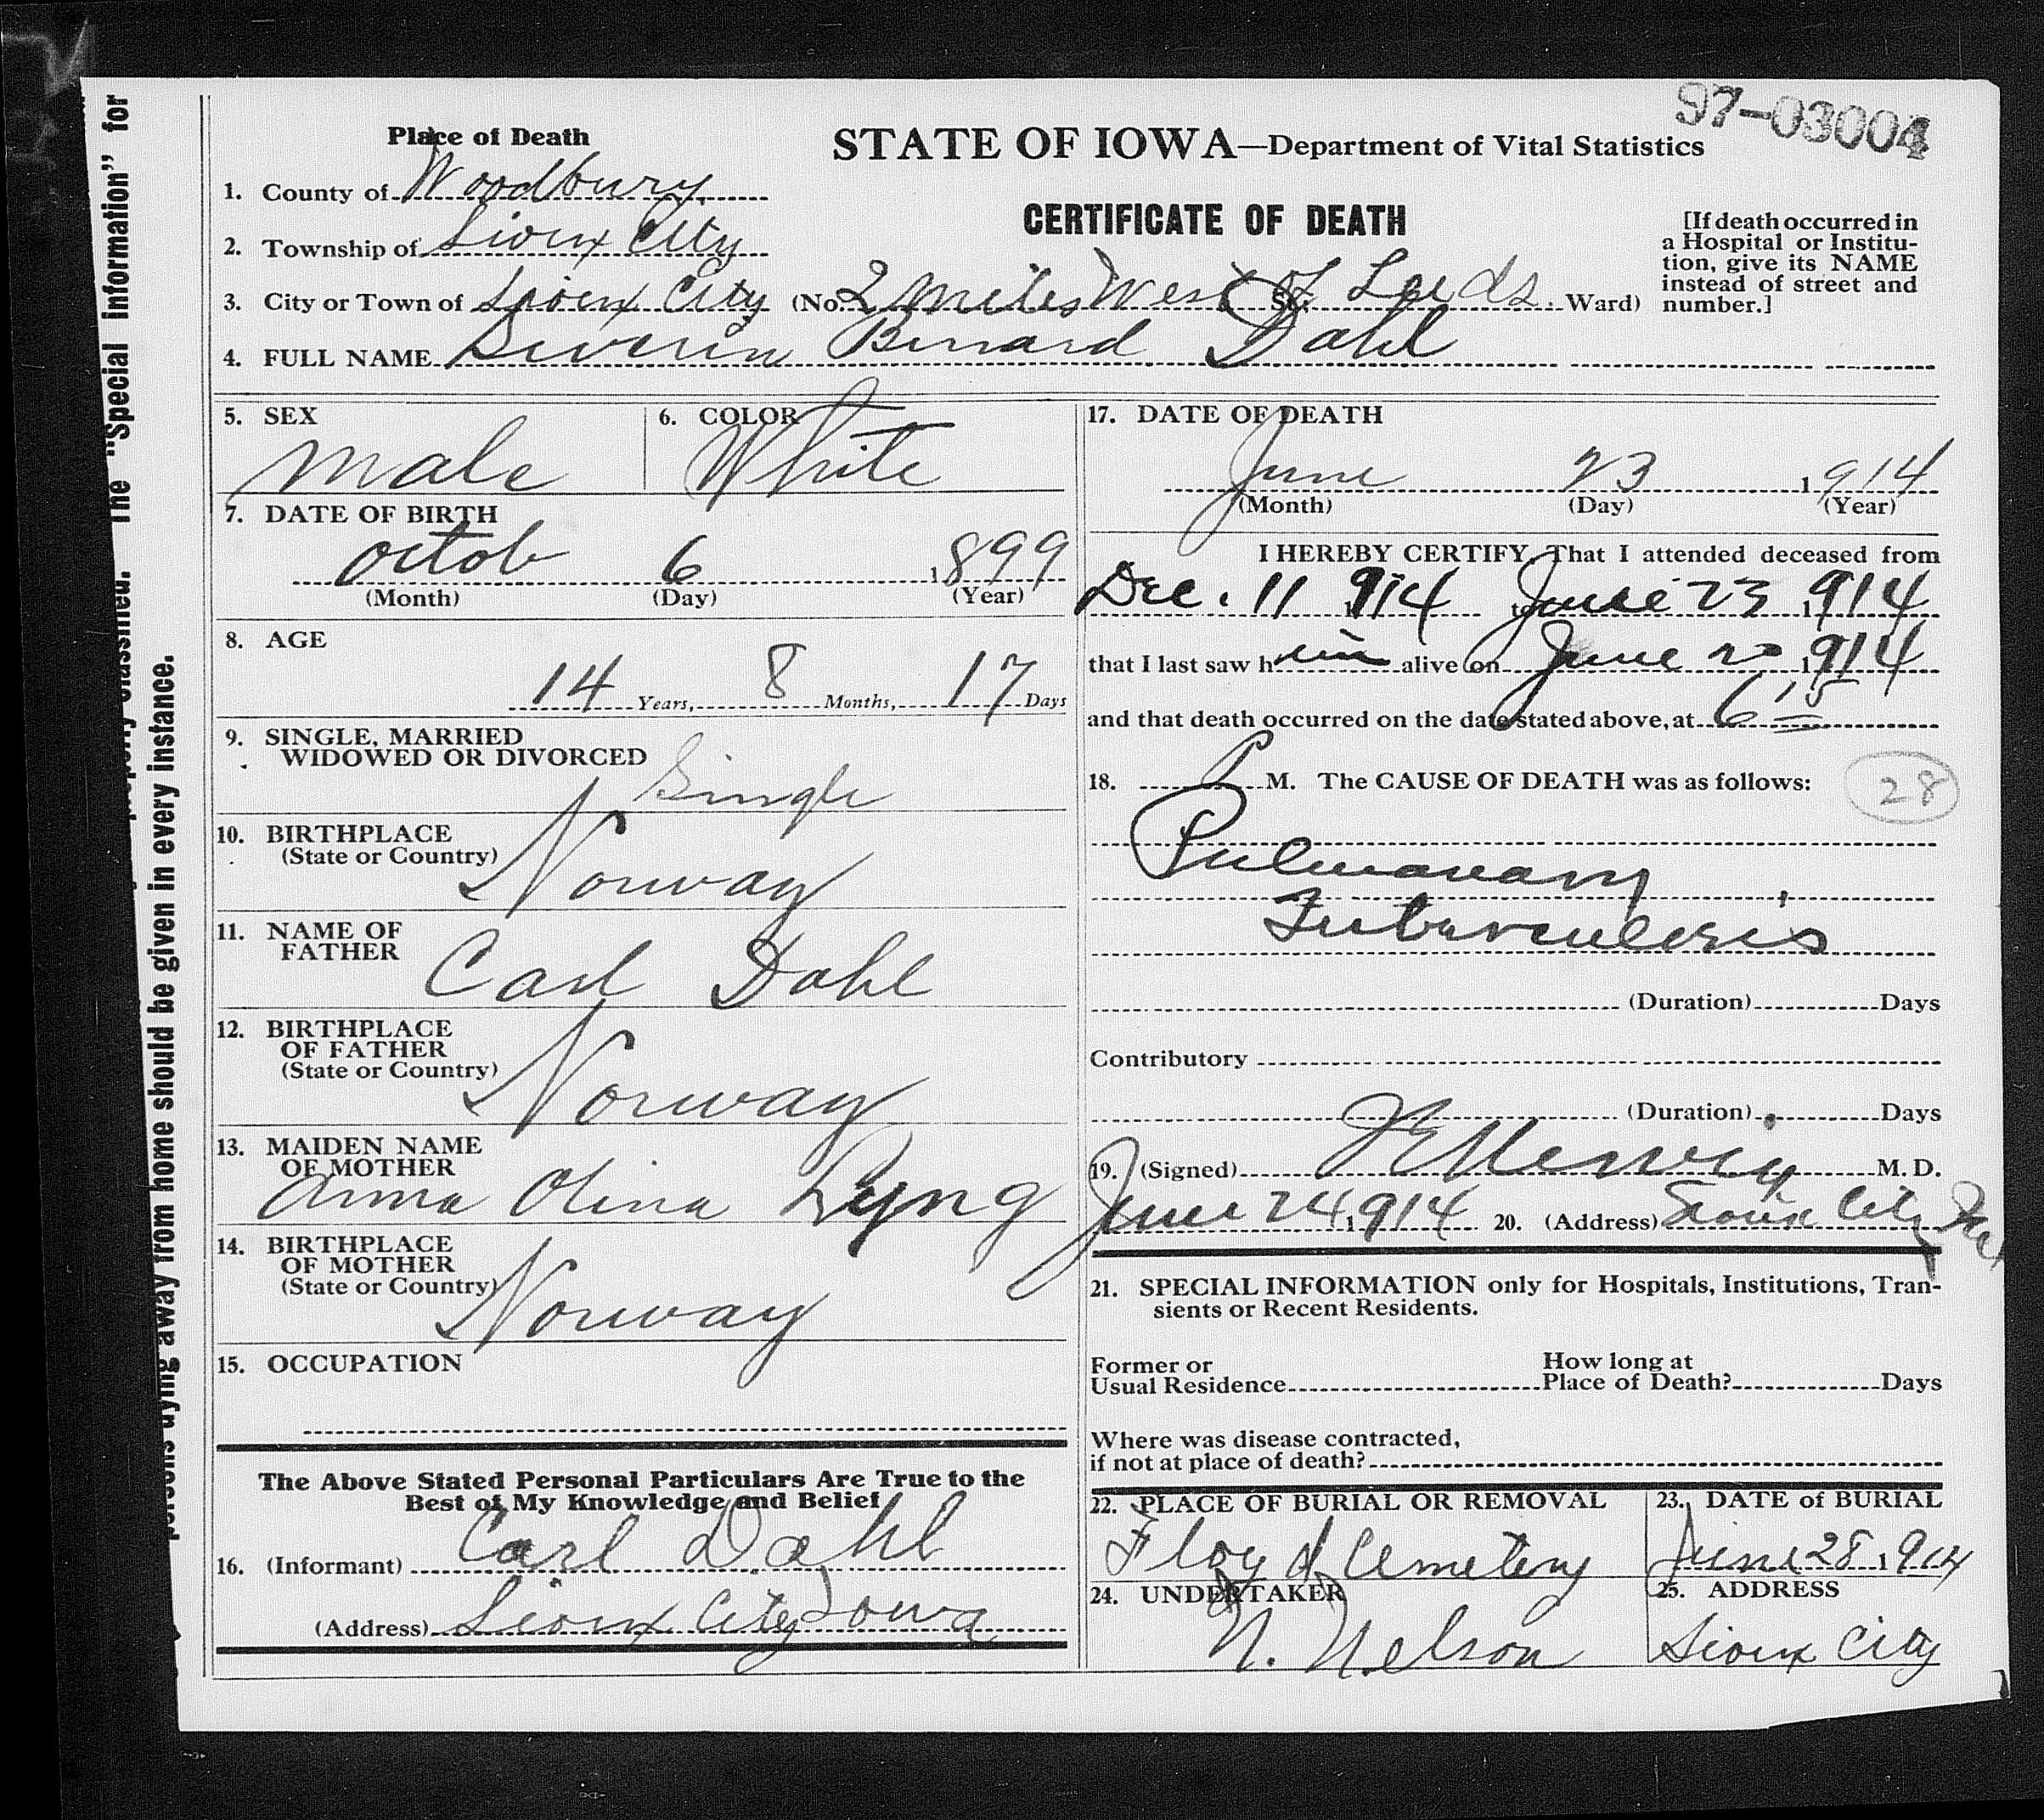 97-03004
Place of Death
STATE OF IOWA—Department of Vital Statistics
1. County of Woodbury
CERTIFICATE OF DEATH
2. Township of Sioux City
[If death occurred in
a Hospital or Institu-
tion, give its NAME
instead of street and
number.]
3. City or Town of Sioux City (No. 2 miles West of Leeds St. Ward)
4. FULL NAME Siverin Bernard Dahl
5. SEX
male
6. COLOR
White
7. DATE OF BIRTH
Octob 6 1899
(Month) (Day) (Year)
8. AGE
14 Years, 8 Months, 17 Days
9. SINGLE, MARRIED
WIDOWED OR DIVORCED
Single
10. BIRTHPLACE
(State or Country)
Norway
11. NAME OF
FATHER
Carl Dahl
12. BIRTHPLACE
OF FATHER
(State or Country)
Norway
13. MAIDEN NAME
OF MOTHER
Anna Olina Lyng
14. BIRTHPLACE
OF MOTHER
(State or Country)
Norway
15. OCCUPATION
The Above Stated Personal Particulars Are True to the
Best of My Knowledge and Belief
16. (Informant) Carl Dahl
(Address) Sioux City Iowa
17. DATE OF DEATH
June 23 1914
(Month) (Day) (Year)
I HEREBY CERTIFY, That I attended deceased from
Dec. 11 1914 to June 23 1914
that I last saw him alive on June 20 1914
and that death occurred on the date stated above, at 6 15
18. P M. The CAUSE OF DEATH was as follows:
28
Pulmonary
Tuberculosis
(Duration) Days
Contributory
(Duration) Days
19. (Signed) M. D.
June 24 1914 20. (Address) Sioux City
21. SPECIAL INFORMATION only for Hospitals, Institutions, Tran-
sients or Recent Residents.
Former or
Usual Residence
How long at
Place of Death? Days
Where was disease contracted,
if not at place of death?
22. PLACE OF BURIAL OR REMOVAL
Floyd Cemetery
23. DATE of BURIAL
June 28 1914
24. UNDERTAKER
N. Nelson
25. ADDRESS
Sioux City
The "Special information" for
properly classified.
persons dying away from home should be given in every instance.